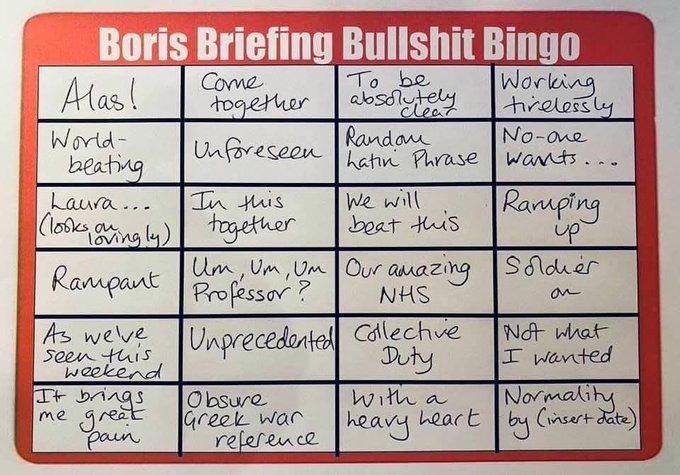 Boris Briefing Bullshit Bingo
Alas!
Come
together
To be
absolutely
clear
Working
tirelessly
World-
beating
Unforeseen
Random
Latin Phrase
No-one
wants...
Laura...
(looks on
lovingly)
In this
together
We will
beat this
Ramping
up
Rampant
Um, Um, Um
Professor?
Our amazing
NHS
Soldier
on
As we've
seen this
weekend
Unprecedented
Collective
Duty
Not what
I wanted
It brings
me great
pain
Obsure
Greek war
reference
With a
heavy heart
Normality
by (insert date)